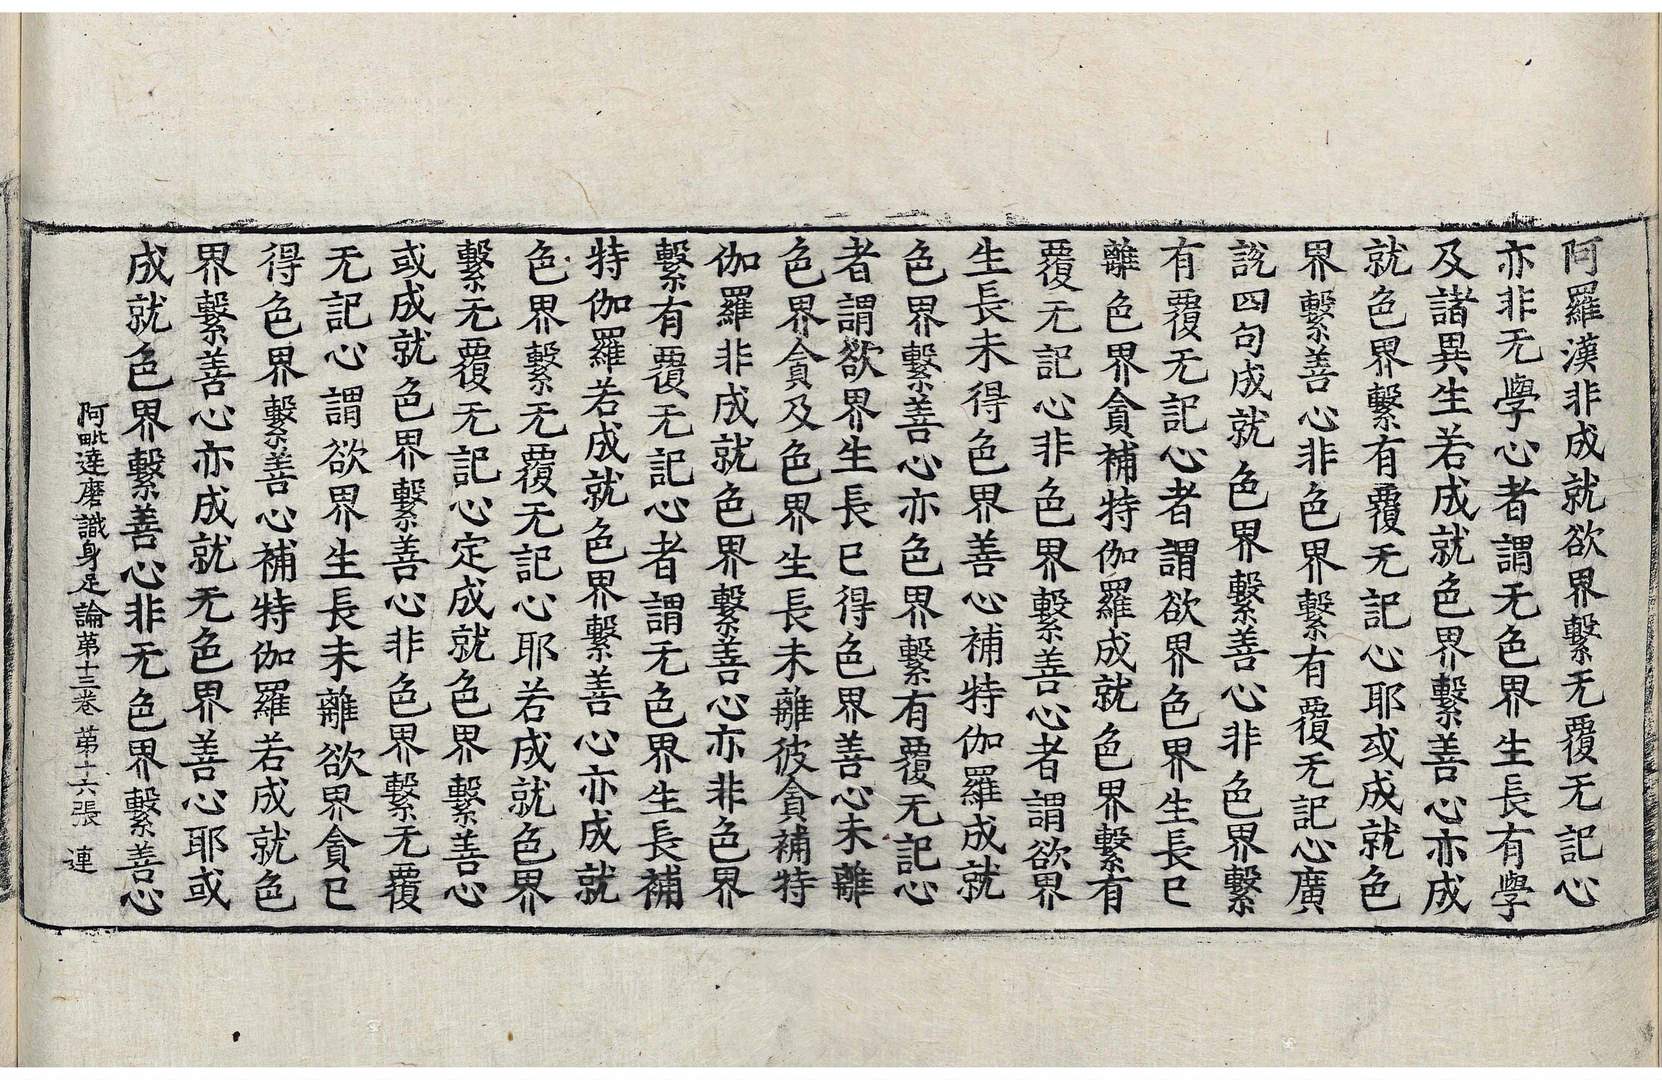 阿羅漢非成就欲界繫无覆无記心
亦非无學心者謂无色界生長有學
及諸異生若成就色界繫善心亦成
就色界繫有覆无記心耶或成就色
界繫善心非色界繫有覆无記心廣
說四句成就色界繫善心非色界繫
有覆无記心者謂欲界色界生長已
離色界貪補特伽羅成就色界繫有
覆无記心非色界繫善心者謂欲界
生長未得色界善心補特伽羅成就
色界繫善心亦色界繫有覆无記心
者謂欲界生長已得色界善心未離
色界貪及色界生長未離彼貪補特
伽羅非成就色界繫善心亦非色界
繫有覆无記心者謂无色界生長補
特伽羅若成就色界繫善心亦成就
色界繫无覆无記心耶若成就色界
繫无覆无記心定成就色界繫善心
或成就色界繫善心非色界繫无覆
无記心謂欲界生長未離欲界貪已
得色界繫善心補特伽羅若成就色
界繫善心亦成就无色界善心耶或
成就色界繫善心非无色界繫善心
阿毗達磨識身足論第十三卷 第十六張 連